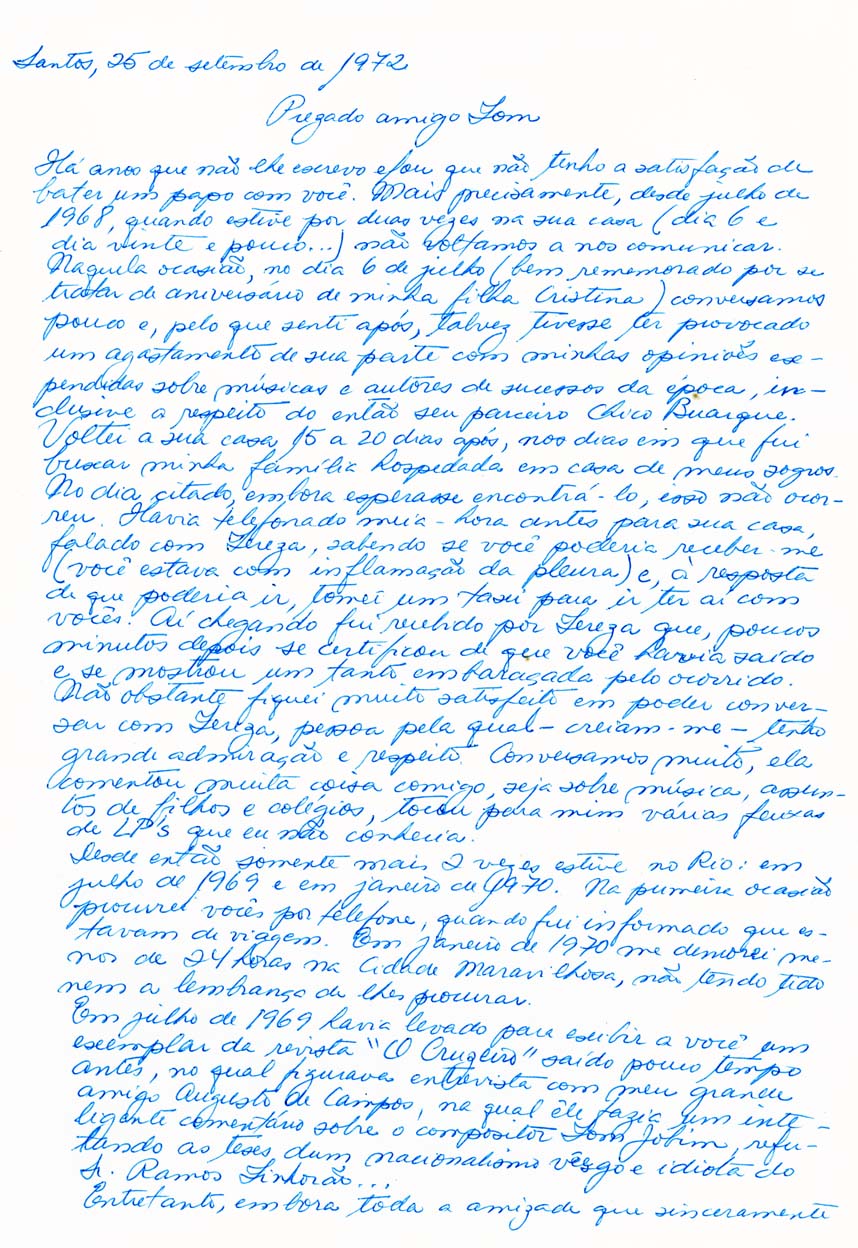 Santos, 25 de setembro de 1972
Prezado amigo Tom
Há anos que não lhe escrevo e/ou que não tenho a satisfação de
bater um papo com você. Mais precisamente, desde julho de
1968, quando estive por duas vezes na sua casa (dia 6 e
dia vinte e pouco...) não voltamos a nos comunicar.
Naquela ocasião, no dia 6 de julho (bem rememorado por se
tratar de aniversário de minha filha Cristina) conversamos
pouco e, pelo que senti após, talvez tivesse ter provocado
um agastamento de sua parte com minhas opiniões ex-
pendidas sobre músicas e autores de sucessos da época, in-
clusive a respeito do então seu parceiro Chico Buarque.
Voltei a sua casa, 15 a 20 dias após, nos dias em que fui
buscar minha família hospedada em casa de meus sogros.
No dia citado, embora esperasse encontrá-lo, isso não ocor-
reu. Havia telefonado meia-hora antes para sua casa,
falado com Tereza, sabendo se você poderia receber-me
(você estava com inflamação da pleura) e, à resposta
de que poderia ir, tomei um taxi para ir ter aí com
vocês. Aí chegando fui recebido por Tereza que, poucos
minutos depois se certificou de que você havia saído
e se mostrou um tanto embaraçada pelo ocorrido.
Não obstante fiquei muito satisfeito em poder conver-
sar com Tereza, pessoa pela qual - creiam-me - tenho
grande admiração e respeito. Conversamos muito, ela
comentou muita coisa comigo, seja sobre música, assun-
tos de filhos e colégios, tocou para mim várias faixas
de LP's que eu não conhecia.
Desde então somente mais 2 vezes estive no Rio: em
julho de 1969 e em janeiro de 1970. Na primeira ocasião
procurei vocês por telefone, quando fui informado que es-
tavam de viagem. Em janeiro de 1970 me demorei me-
nos de 24 horas na Cidade Maravilhosa, não tendo tido
nem a lembrança de lhes procurar.
Em julho de 1969 havia levado para exibir a você um
exemplar da revista "O Cruzeiro" saído pouco tempo
antes, no qual figurava entrevista com meu grande
amigo Augusto de Campos, na qual êle fazia um inte-
ligente comentário sobre o compositor Tom Jobim, refu-
tando as teses dum nacionalismo vêsgo e idiota do
Sr. Ramos Tinhorão...
Entretanto, embora toda a amizade que sinceramente